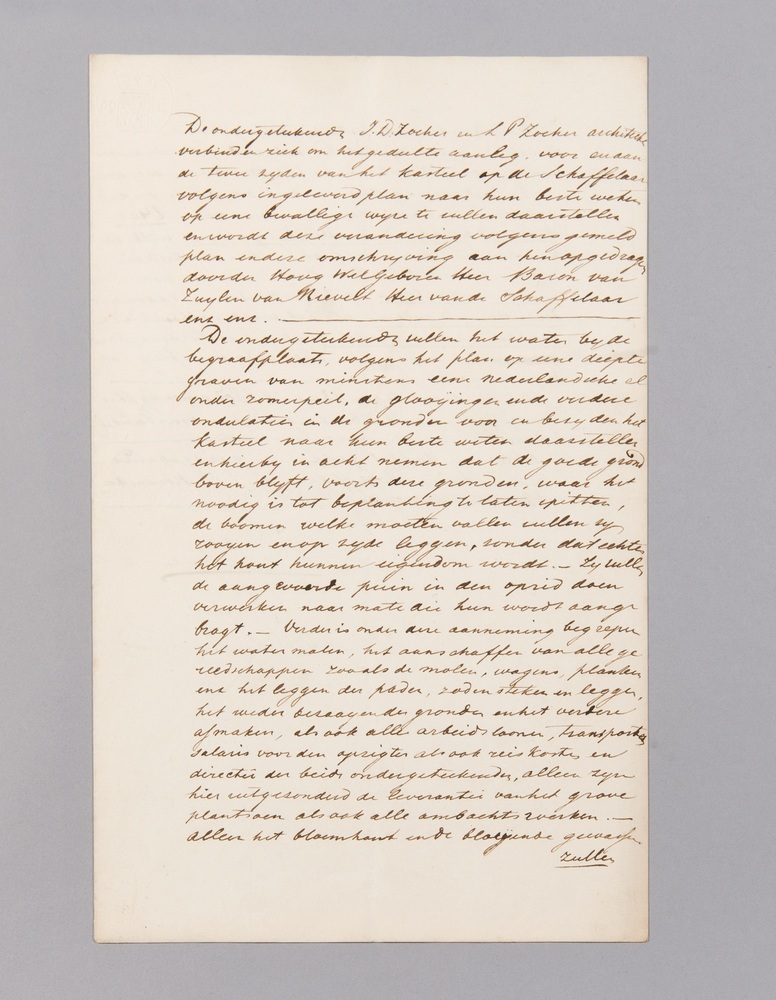 De ondergeteekende J. D. Zocher en L P Zocher architecte
verbinden zich om het gedeelte aanleg, voor en aan
de twee zyden van het kasteel op de Schaffelaar
volgens ingeleverd plan naar hun beste weten
op eene bevallige wyze te zullen daarstellen
en wordt deze verandering volgens gemeld
plan en deze omschryving aan hen opgedragen
door den Hoog Wel Geboren Heer Baron van
Zuylen van Nievelt Heer van de Schaffelaar
enz enz. —
De ondergeteekende zullen het water by de
begraafplaats, volgens het plan op eene diepte
graven van minstens eene nederlandsche el
onder zomerpeil, de glooijingen en de verdere
ondulatien in de gronden voor en bezyden het
kasteel naar hun beste weten daarstellen
en hierby in acht nemen dat de goede grond
boven blyft, voorts deze gronden, waar het
noodig is tot beplanting te laten spitten,
de boomen welke moeten vallen zullen zy
rooyen en op zyde leggen, zonder dat echter
het hout hunnen eigendom wordt. — Zy zullen
de aangevoerde puin in den oprid doen
verwerken naar mate die hun wordt aange
bragt. — Verder is onder deze aanneming begrepen
het water malen, het aanschaffen van alle ge
reedschappen zoo als de molen, wagens, planken
enz het leggen der paden, zoden steken en leggen,
het weder bezaayen der gronden en het verdere
afmaken, als ook alle arbeidsloonen, transporten
salaris voor den opzigter als ook reiskosten en
directie der beide ondergeteekenden, alleen zyn
hier uitgezonderd de leverantie van het grove
plantsoen als ook alle ambachtswerken. —
alleen het bloemhout en de bloeijende gewassen
zullen